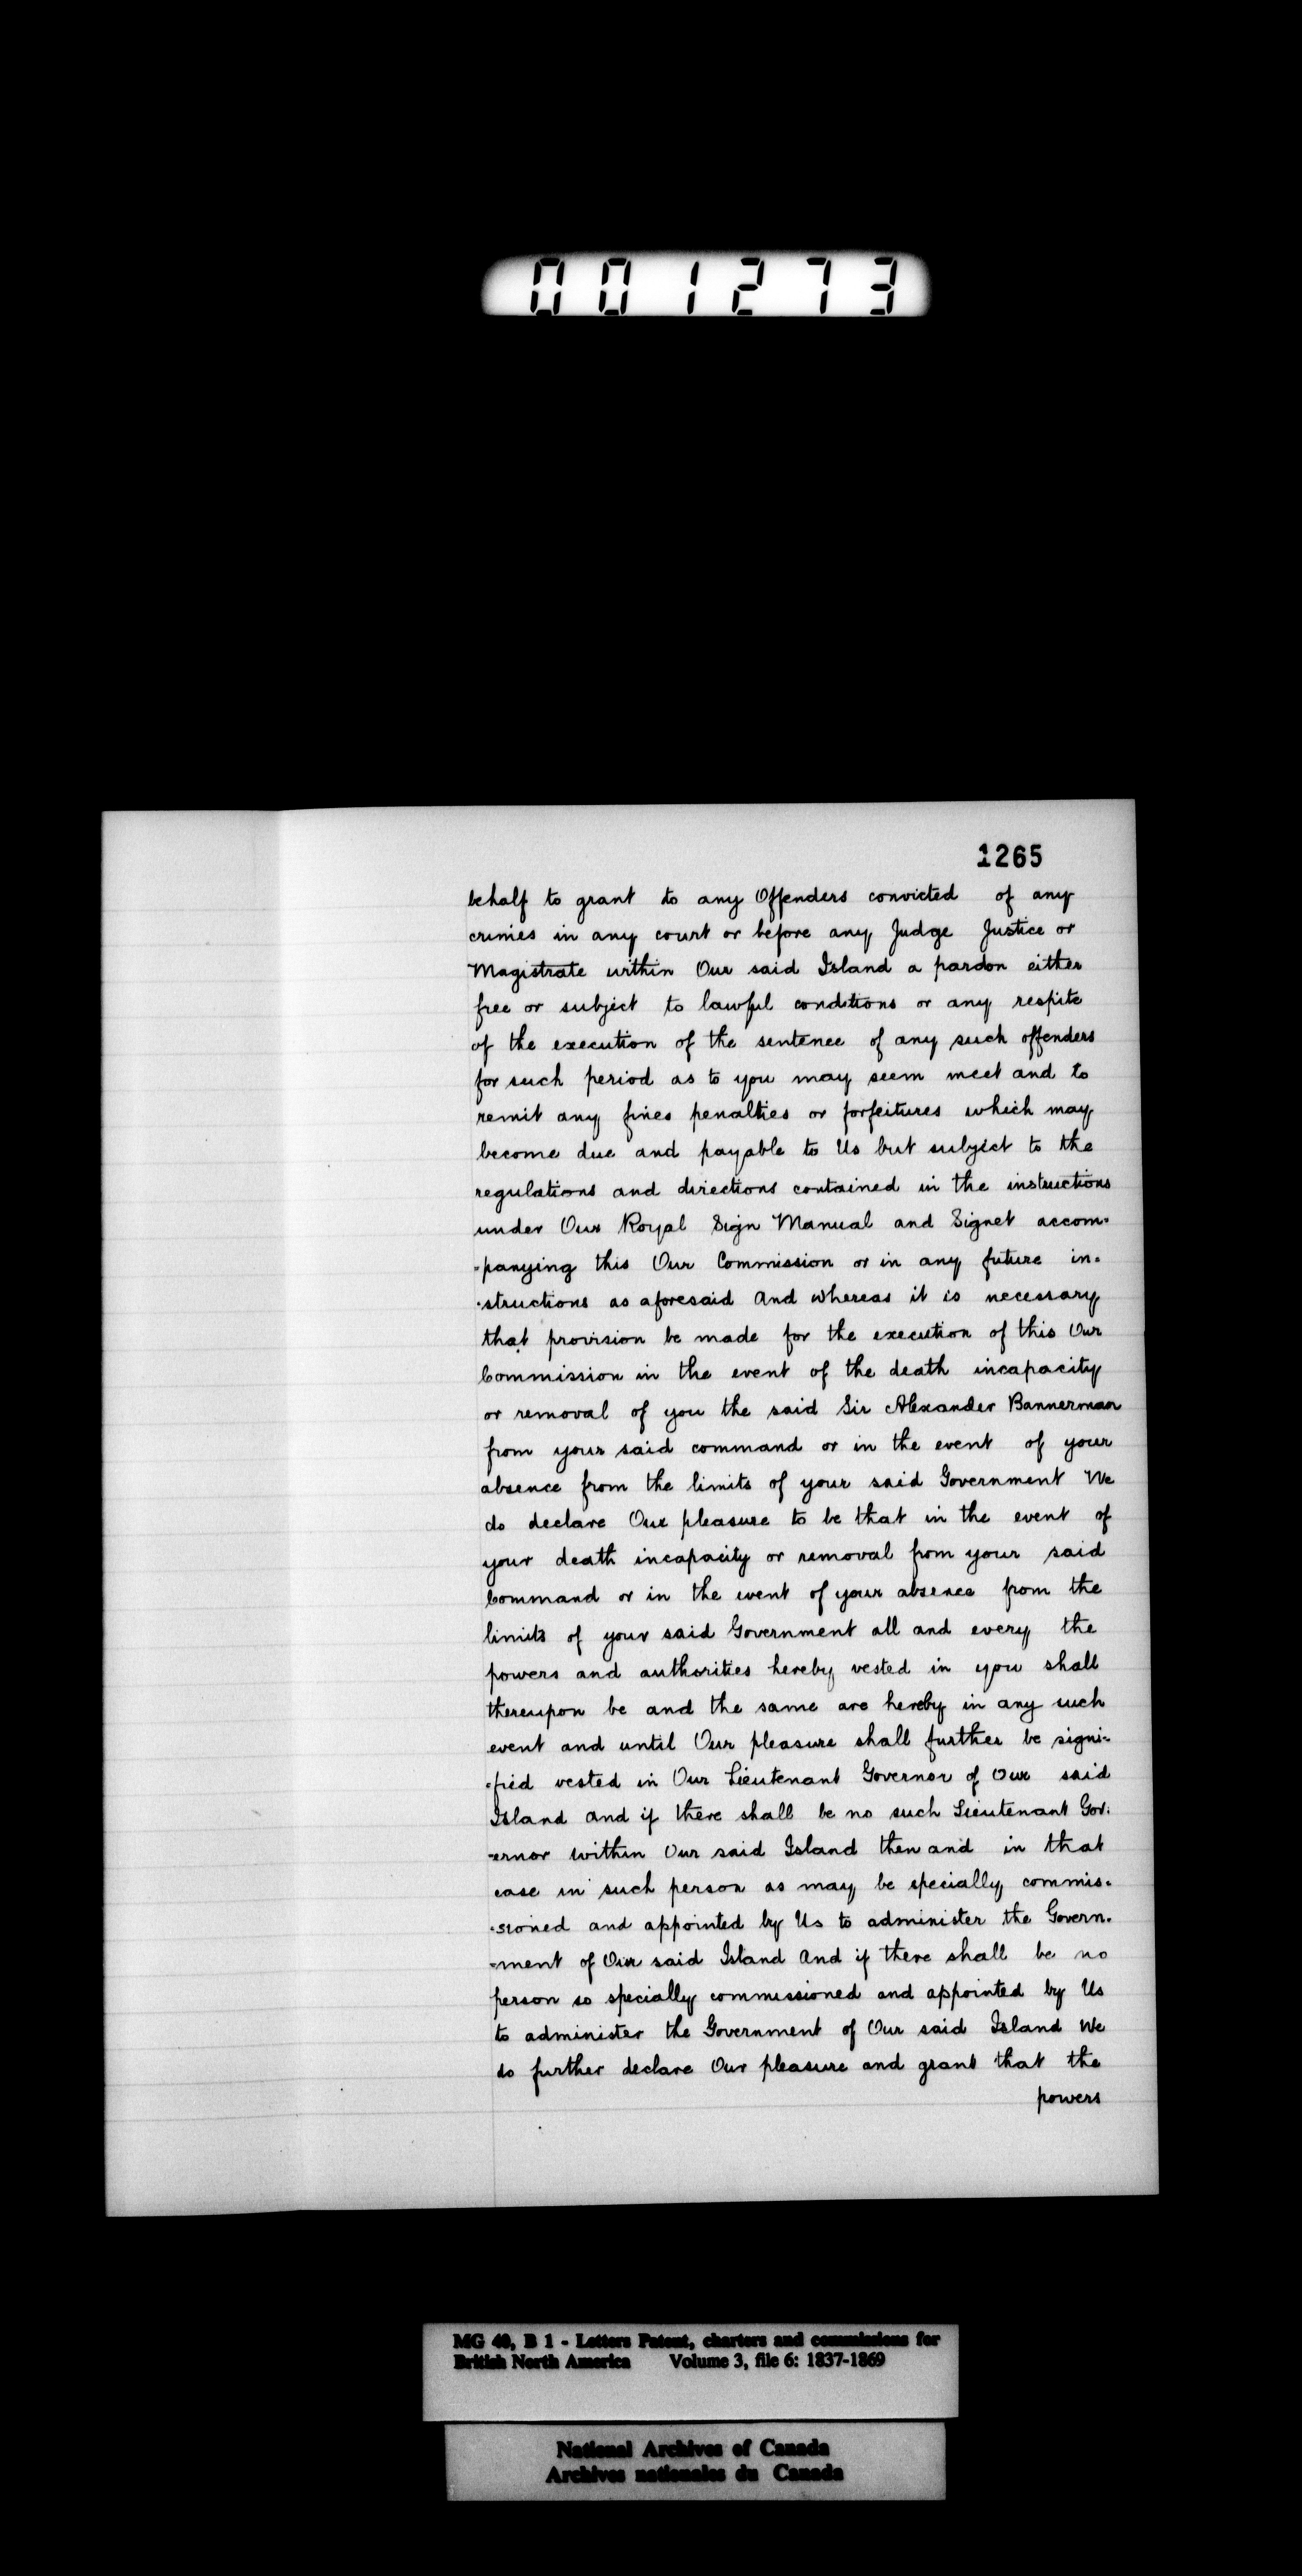 001273
1265
behalf to grant to any Offenders convicted of any
crimes in any court or before any Judge Justice or
Magistrate within Our said Island a pardon either
free or subject to lawful conditions or any respite
of the execution of the sentence of any such offenders
for such period as to you may seem meet and to
remit any fines penalties or forfeitures which may
become due and payable to Us but subject to the
regulations and directions contained in the instructions
under Our Royal Sign Manual and Signet accom-
-panying this Our Commission or in any future in-
-structions as aforesaid And whereas it is necessary
that provision be made for the execution of this Our
Commission in the event of the death incapacity
or removal of you the said Sir Alexander Bannerman
from your said command or in the event of your
absence from the limits of your said Government We
do declare Our pleasure to be that in the event of
your death incapacity or removal from your said
Command or in the event of your absence from the
limits of your said Government all and every the
powers and authorities hereby vested in you shall
thereupon be and the same are hereby in any such
event and until Our pleasure shall further be signi-
-fied vested in Our Lieutenant Governor of Our said
Island and if there shall be no such Lieutenant Gov-
-ernor within Our said Island then and in that
case in such person as may be specially commis-
-sioned and appointed by Us to administer the Govern-
-ment of Our said Island And if there shall be no
person so specially commissioned and appointed by Us
to administer the Government of Our said Island We
do further declare Our pleasure and grant that the
powers
MG 40, B 1 - Letters Patent, charters and commissions for
British North America Volume 3, file 6: 1837-1869
National Archives of Canada
Archives nationales du Canada